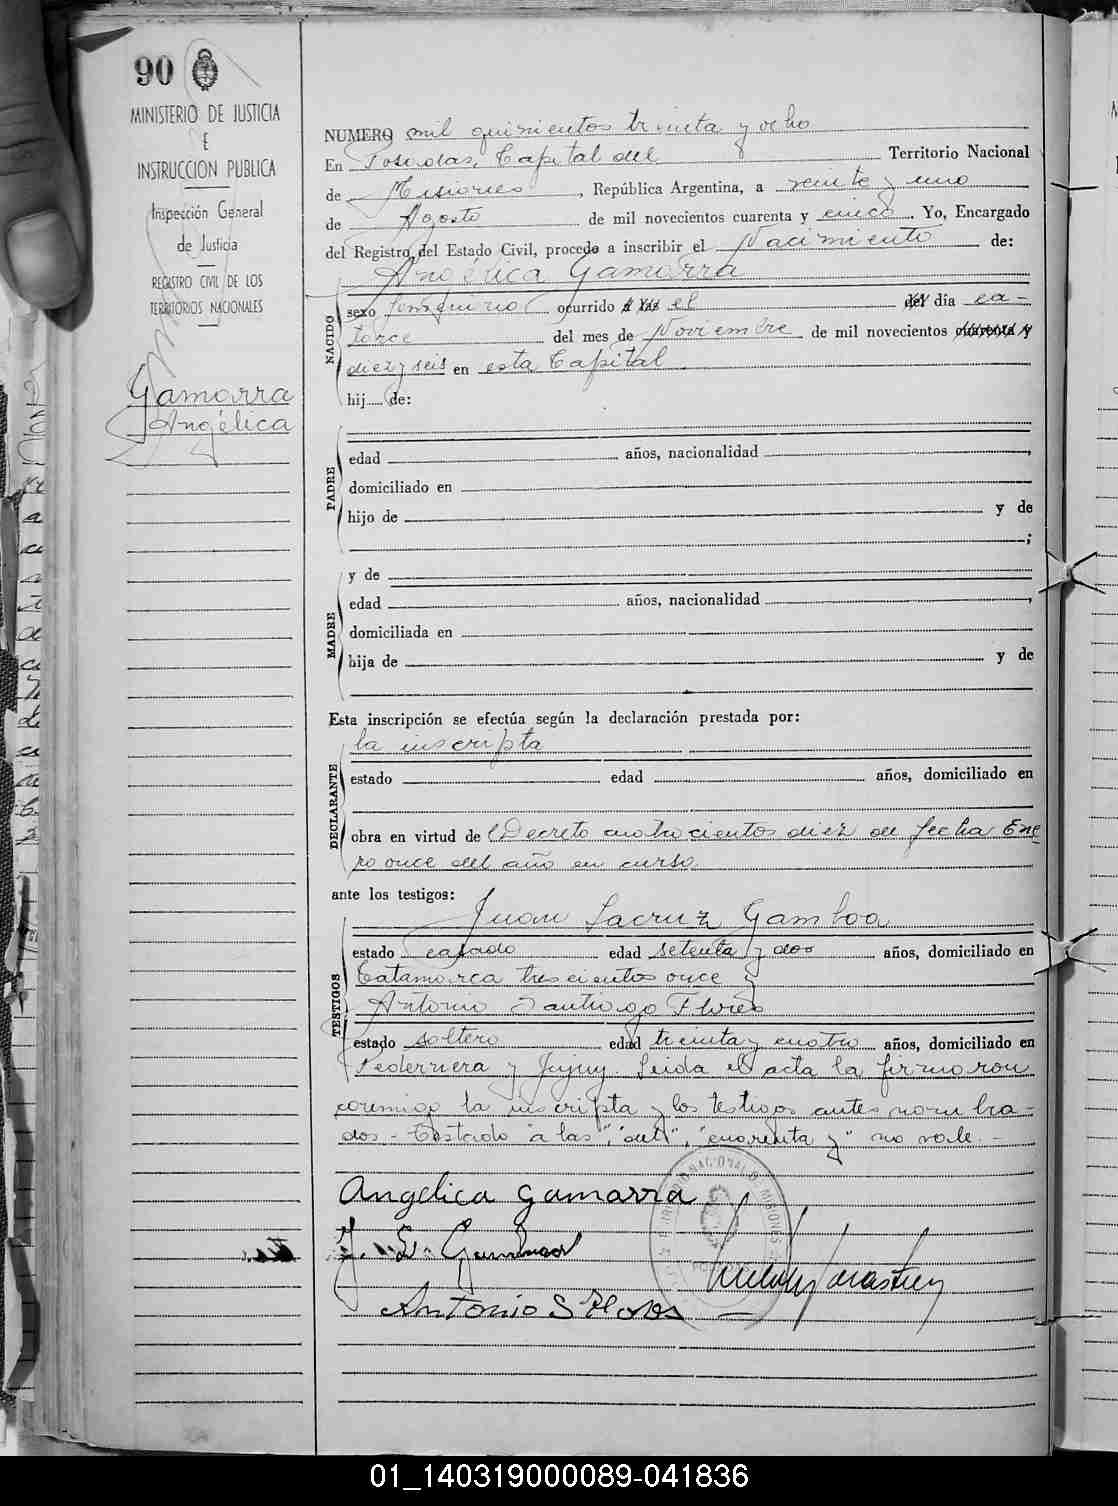 90
MINISTERIO DE JUSTICIA
E
INSTRUCCION PUBLICA
Inspección General
de Justicia
REGISTRO CIVIL DE LOS
TERRITORIOS NACIONALES
Gamarra
Angélica
NUMERO mil quinientos treinta y ocho
En Posadas, Capital del Territorio Nacional
de Misiones, República Argentina, a veinte y uno
de Agosto de mil novecientos cuarenta y cinco. Yo, Encargado
del Registro del Estado Civil, procedo a inscribir el Nacimiento de:
Angélica Gamarra
NACIDO
sexo femenino ocurrido a las el del día ca-
torce del mes de Noviembre de mil novecientos cuarenta y
diez y seis en esta Capital
hij de:
PADRE
edad años, nacionalidad ,
domiciliado en
hijo de y de
;
MADRE
y de
edad años, nacionalidad ,
domiciliada en
hija de y de
Esta inscripción se efectúa según la declaración prestada por:
DECLARANTE
la inscripta
estado edad años, domiciliado en
obra en virtud de Decreto cuatrocientos diez de fecha Ene
ro once del año en curso
ante los testigos:
TESTIGOS
Juan Lacruz Gamboa
estado casado edad setenta y dos años, domiciliado en
Catamarca trescientos once y
Antonio Santiago Flores
estado soltero edad treinta y cuatro años, domiciliado en
Pedernera y Jujuy. Leida el acta la firmaron
conmigo la inscripta y los testigos antes nombra-
dos - Testado "a las", "del", "cuarenta y" no vale. -
Angelica Gamarra
J. L. Gamboa
Antonio S Flores
01_140319000089-041836